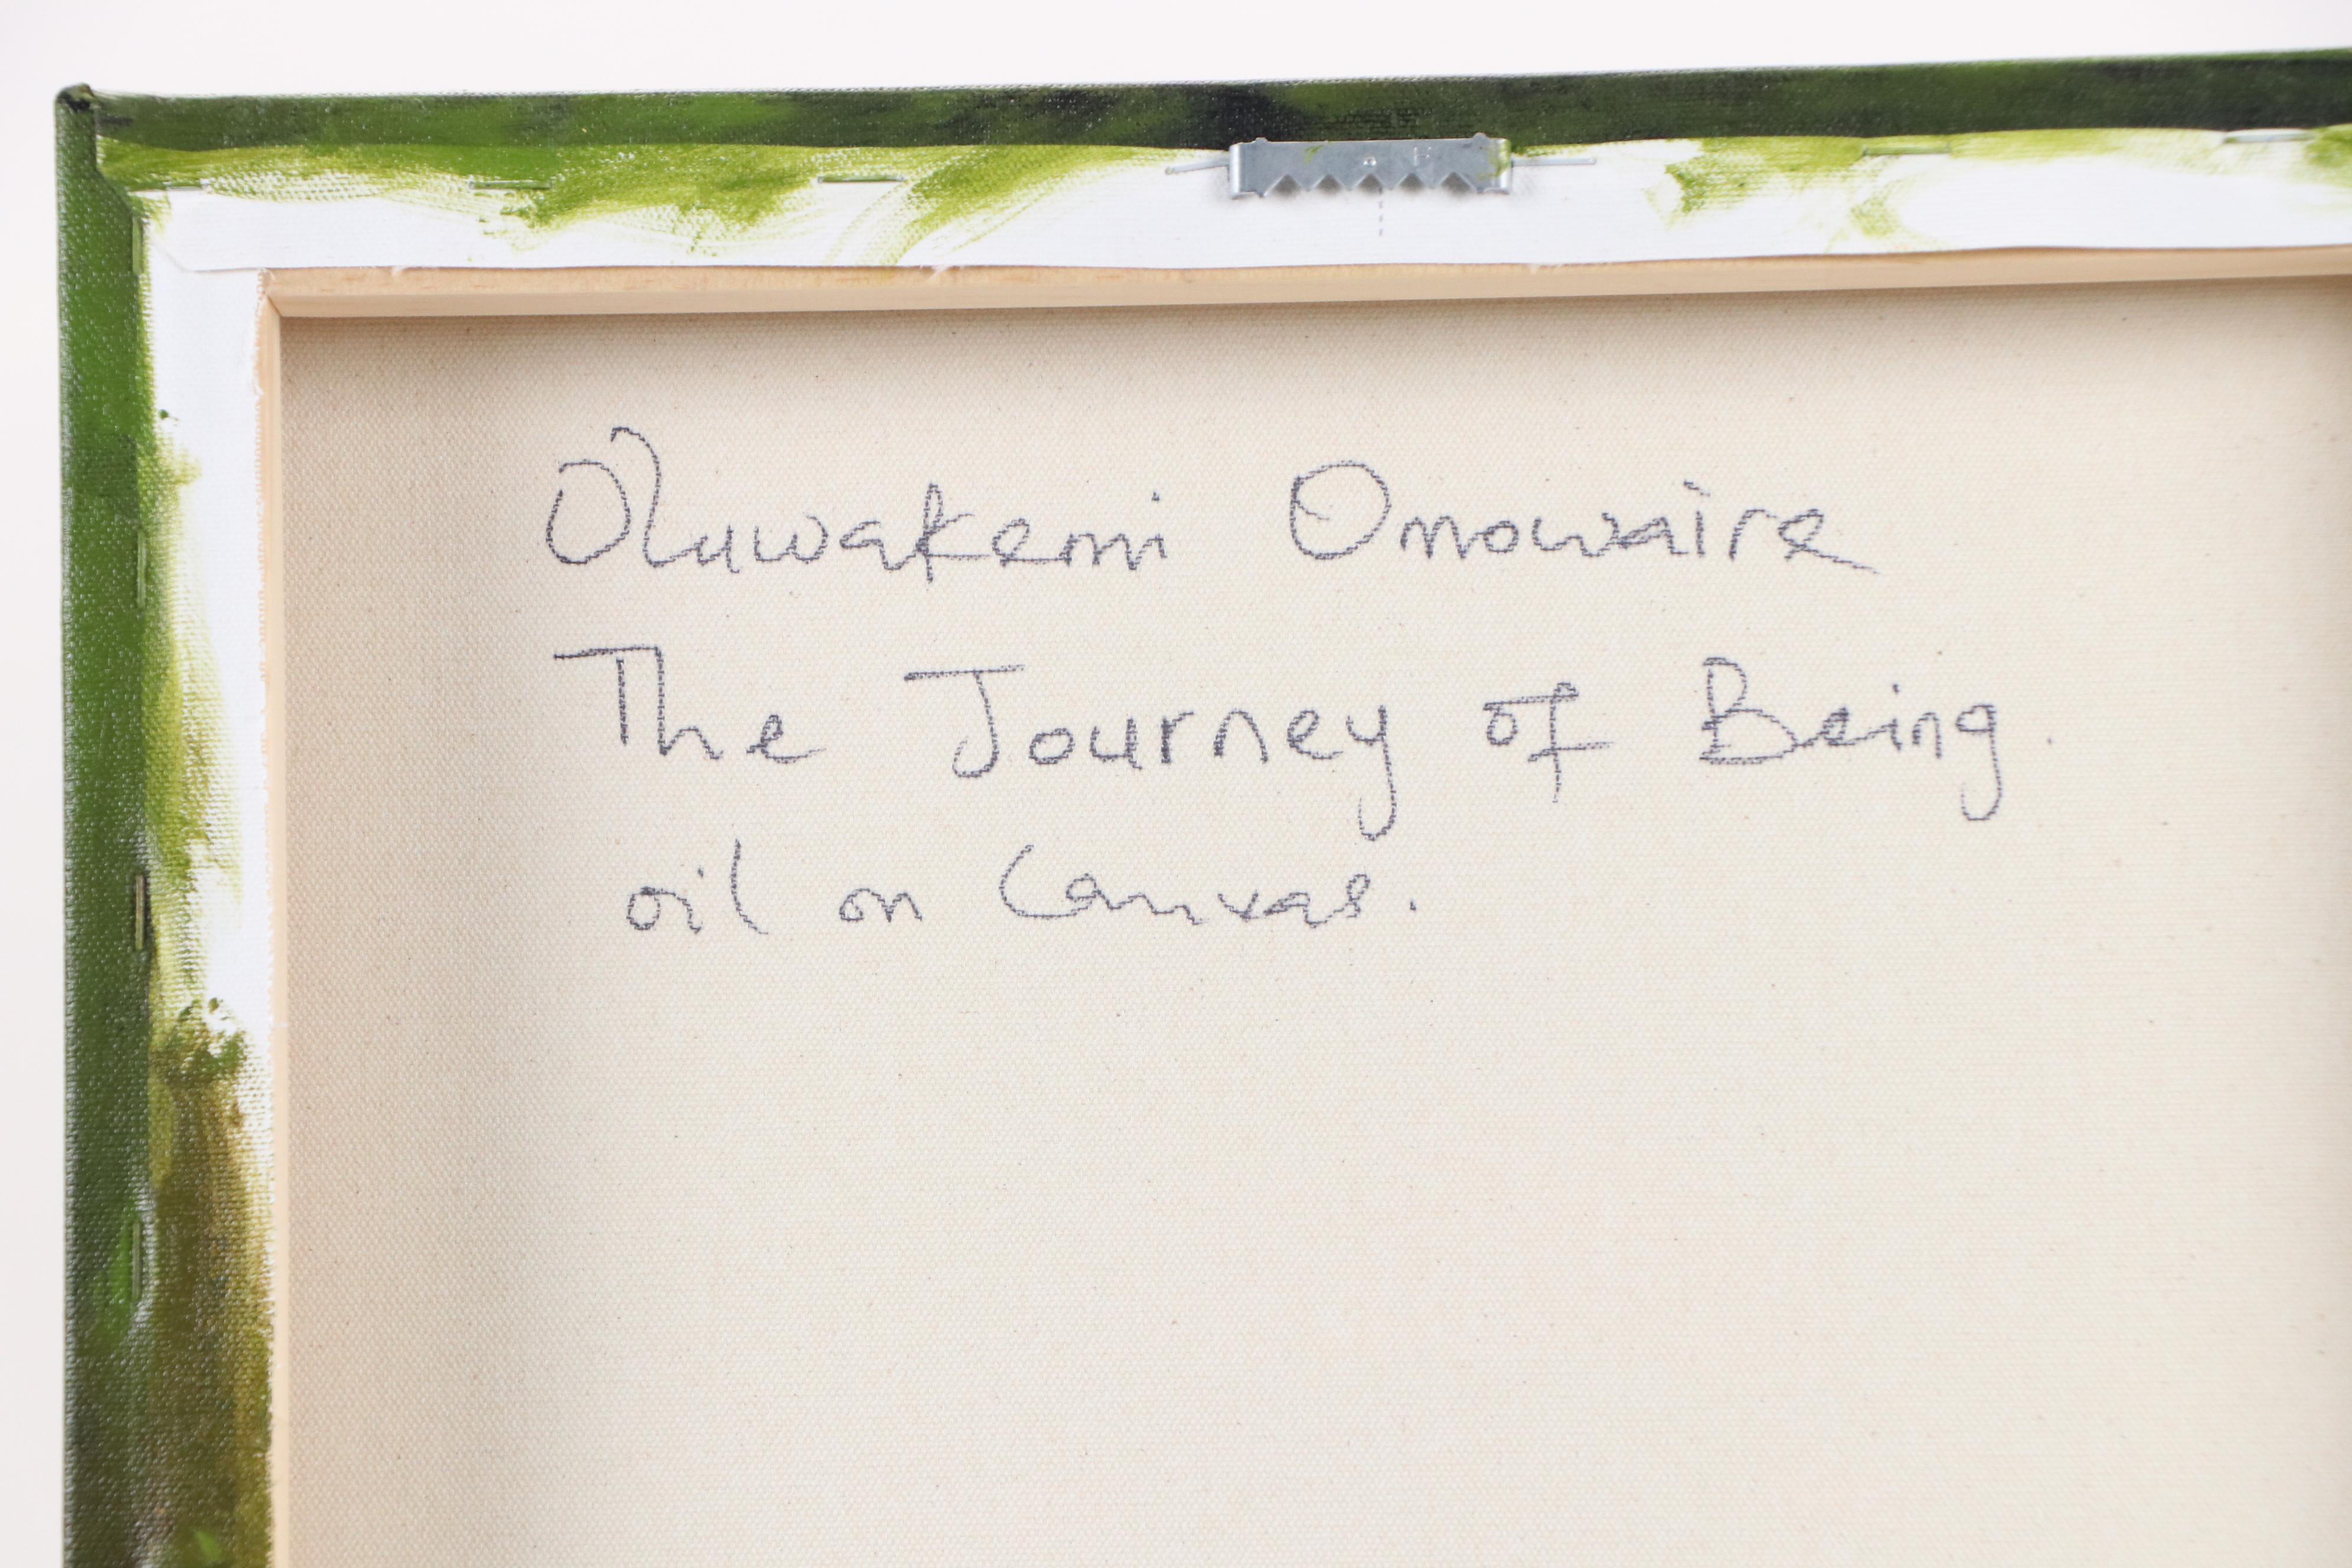 Oluwakemi Omowaire
The Journey of Being.
oil on Canvas.